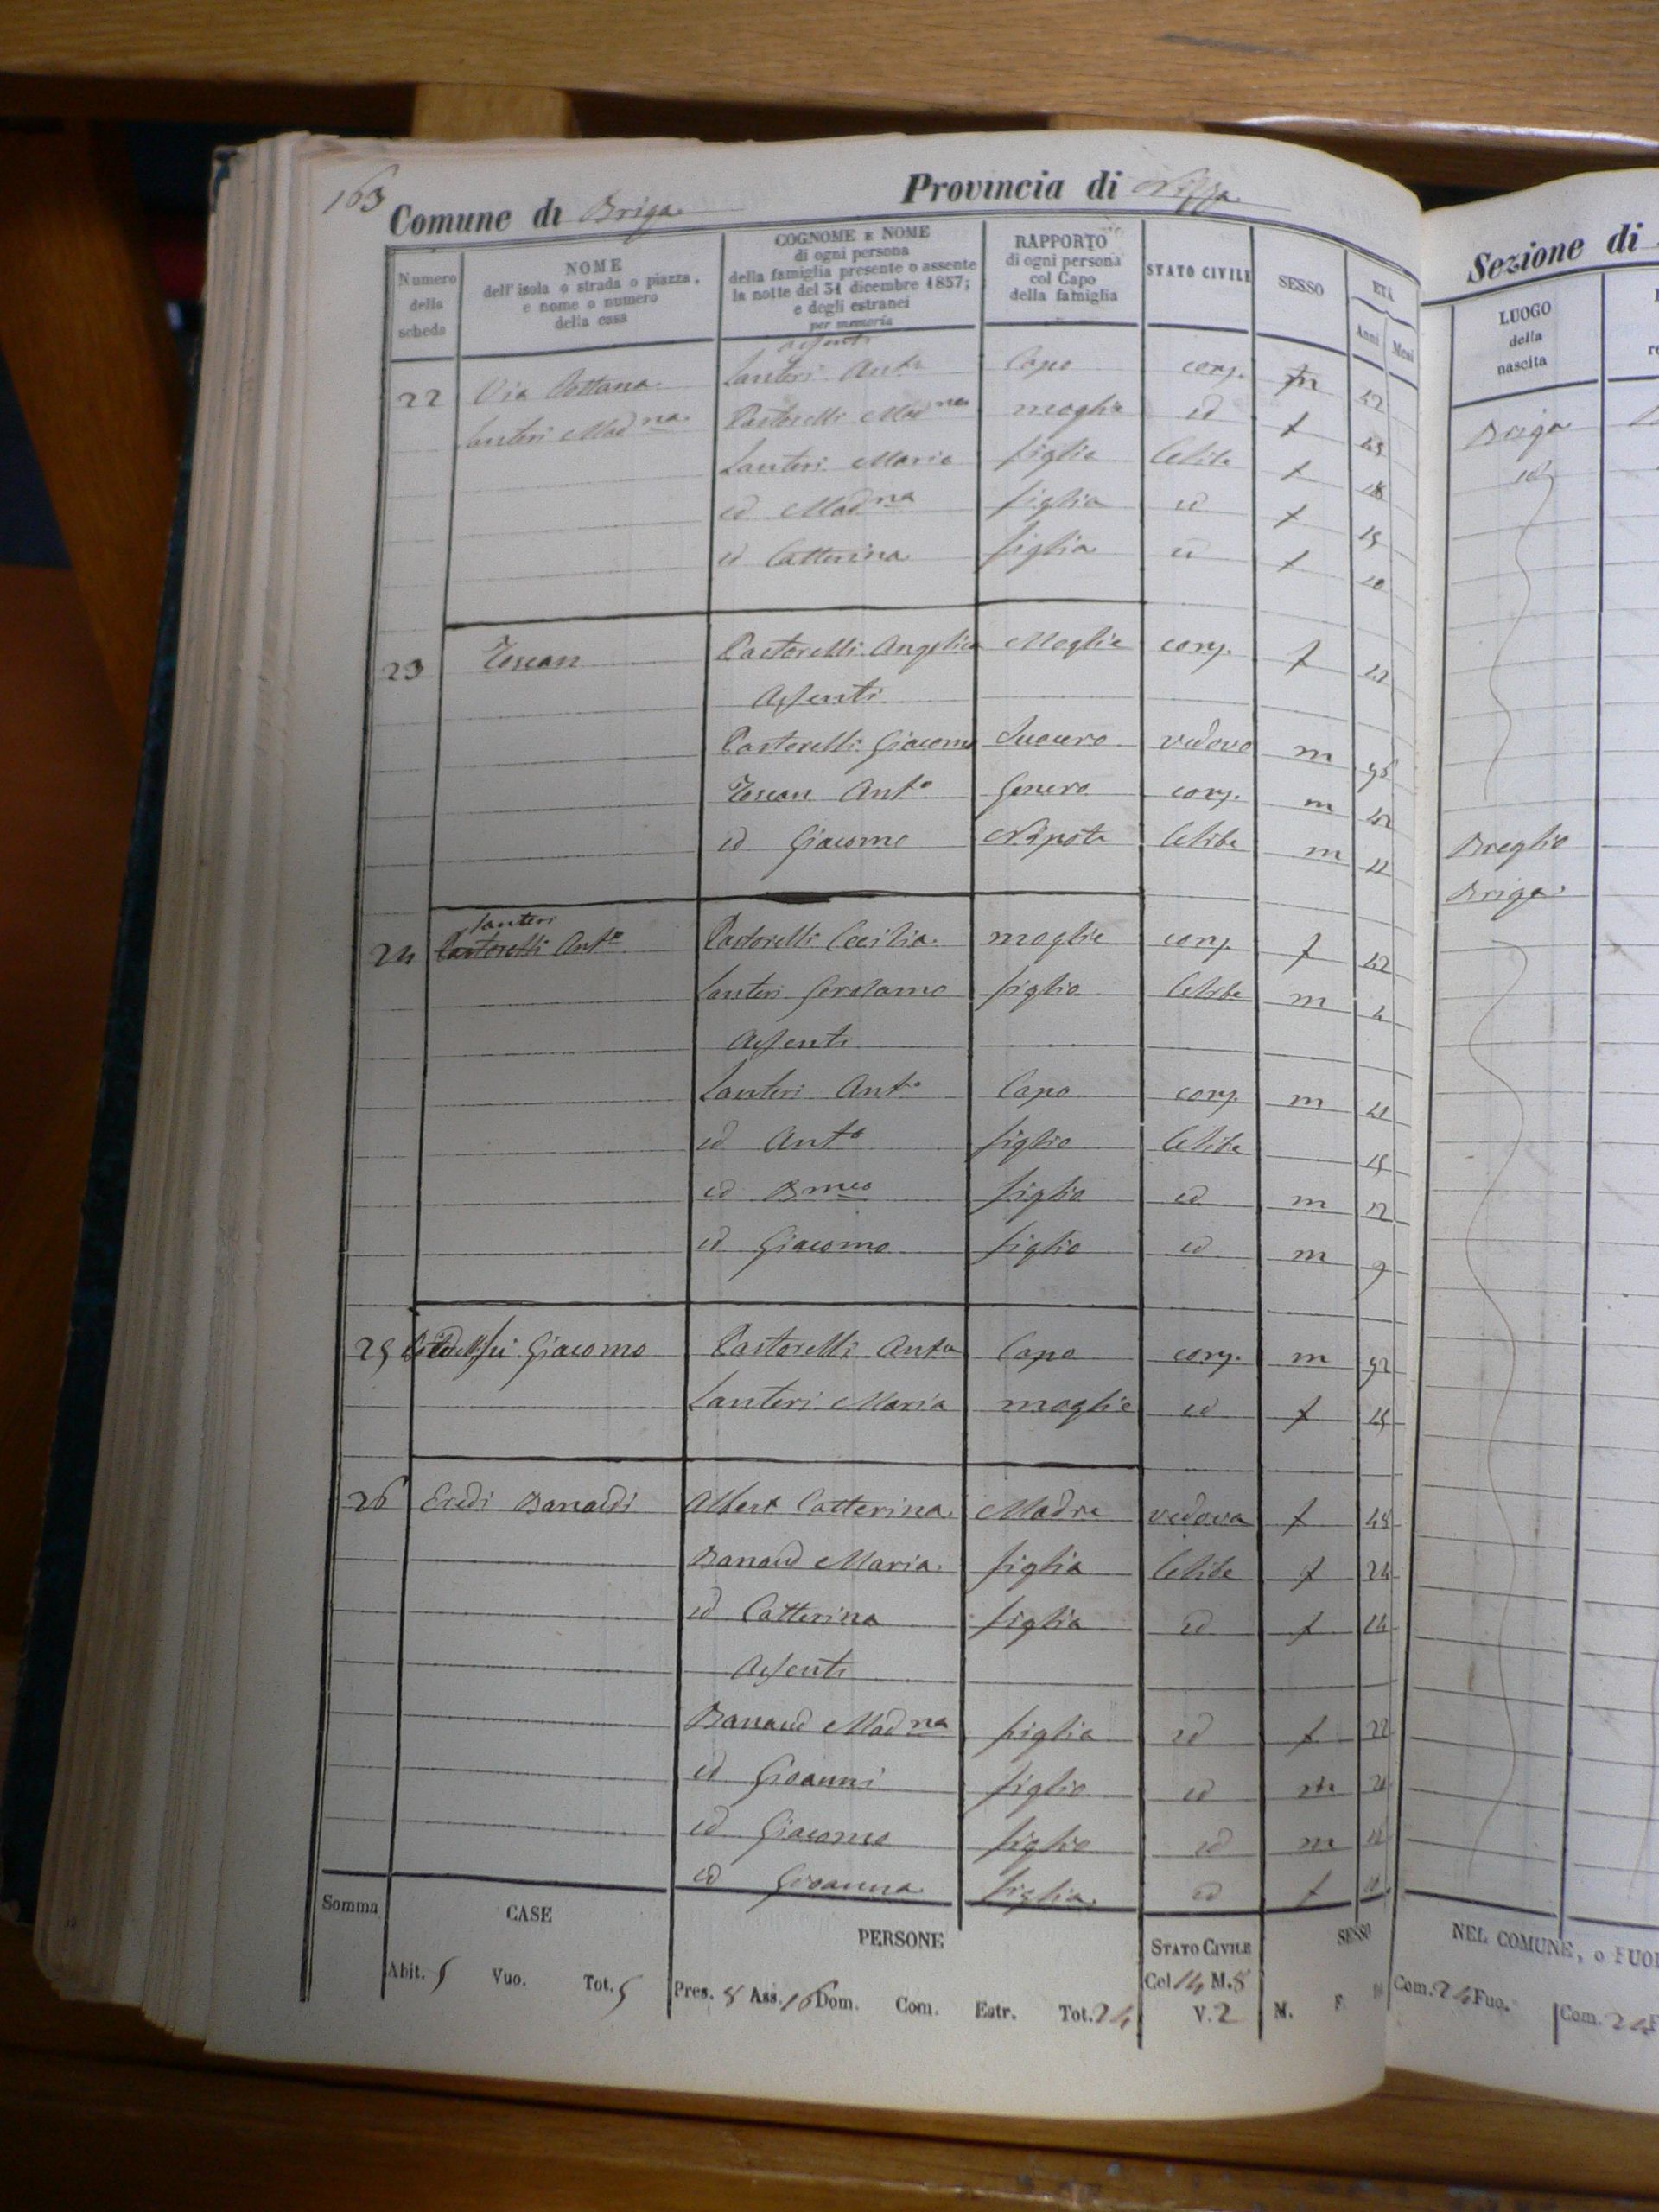 163
Comune di Briga
Provincia di Nizza
Sezione di
Numero della scheda
NOME dell'isola o strada o piazza, e nome o numero della casa
COGNOME E NOME di ogni persona della famiglia presente o assente la notte del 31 dicembre 1857; e degli estranei per memoria
RAPPORTO di ogni persona col Capo della famiglia
STATO CIVILE
SESSO
ETÀ
Anni Mesi
LUOGO della nascita
assenti
22 Via Lanteri Ant. Capo conj. m
Lanteri Mad.na Pastorelli Mad.na moglie id f Briga
Lanteri Maria figlia Celibe f 18 id
id Mad.na figlia id f 15
id Catterina figlia id f 10
23 Toscan Pastorelli Angelica Moglie conj. f
Assenti
Pastorelli Giacomo Suocero vedovo m
Toscan Ant.o Genero conj. m 42 Breglio
id Giacomo Nipote Celibe m 11 Briga
Lanteri
24 Pastorelli Ant.o Pastorelli Cecilia moglie conj. f 42
Lanteri Gerolamo figlio Celibe m 4
Assenti
Lanteri Ant.o Capo conj. m
id Ant.o figlio Celibe 15
id Bmeo figlio id m 12
id Giacomo figlio id m 9
25 Giacomo Pastorelli Ant.o Capo conj. m 52
Lanteri Maria moglie id f 45
26 Eredi Banaudi Albert Catterina Madre vedova f 48
Banaud Maria figlia Celibe f 24
id Catterina figlia id f 14
Assenti
Banaud Mad.na figlia id f 22
id Gioanni figlio id m
id Giacomo figlio id m
id Gioanna figlia id f
Somma
CASE
PERSONE
STATO CIVILE
SESSO
NEL COMUNE, o FUO
Abit. 5 Vuo. Tot. 5
Pres. 8 Ass. 16 Dom. Com. Estr. Tot. 24
Cel 14 M. 8
V. 2
M. F.
Com. 24 Fuo.
Com. 24 F